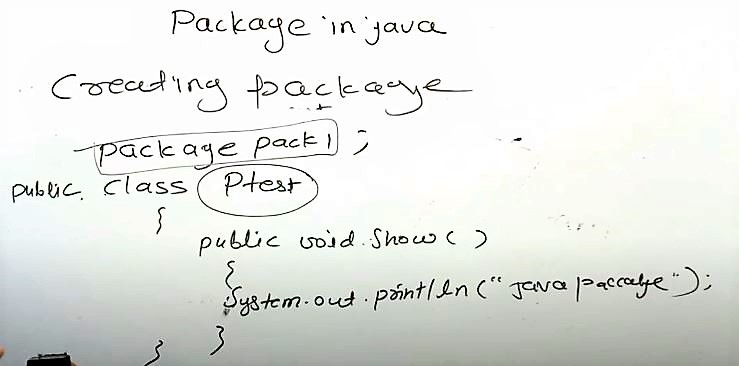 Package in java
Creating package
package pack1 ;
public class Ptest
{
public void show ( )
{
System.out.println ("java paccage");
}
}